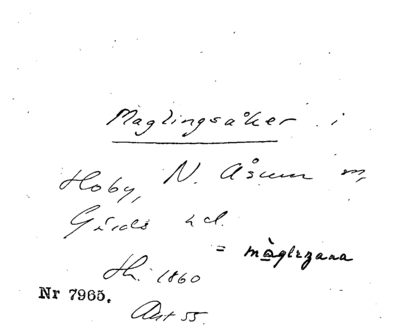 Maglingsåker i
Hoby, N. Åsum sn,
Gärds hd.
= màglızana
Hr. 1860
Nr 7965.
Avt 55.